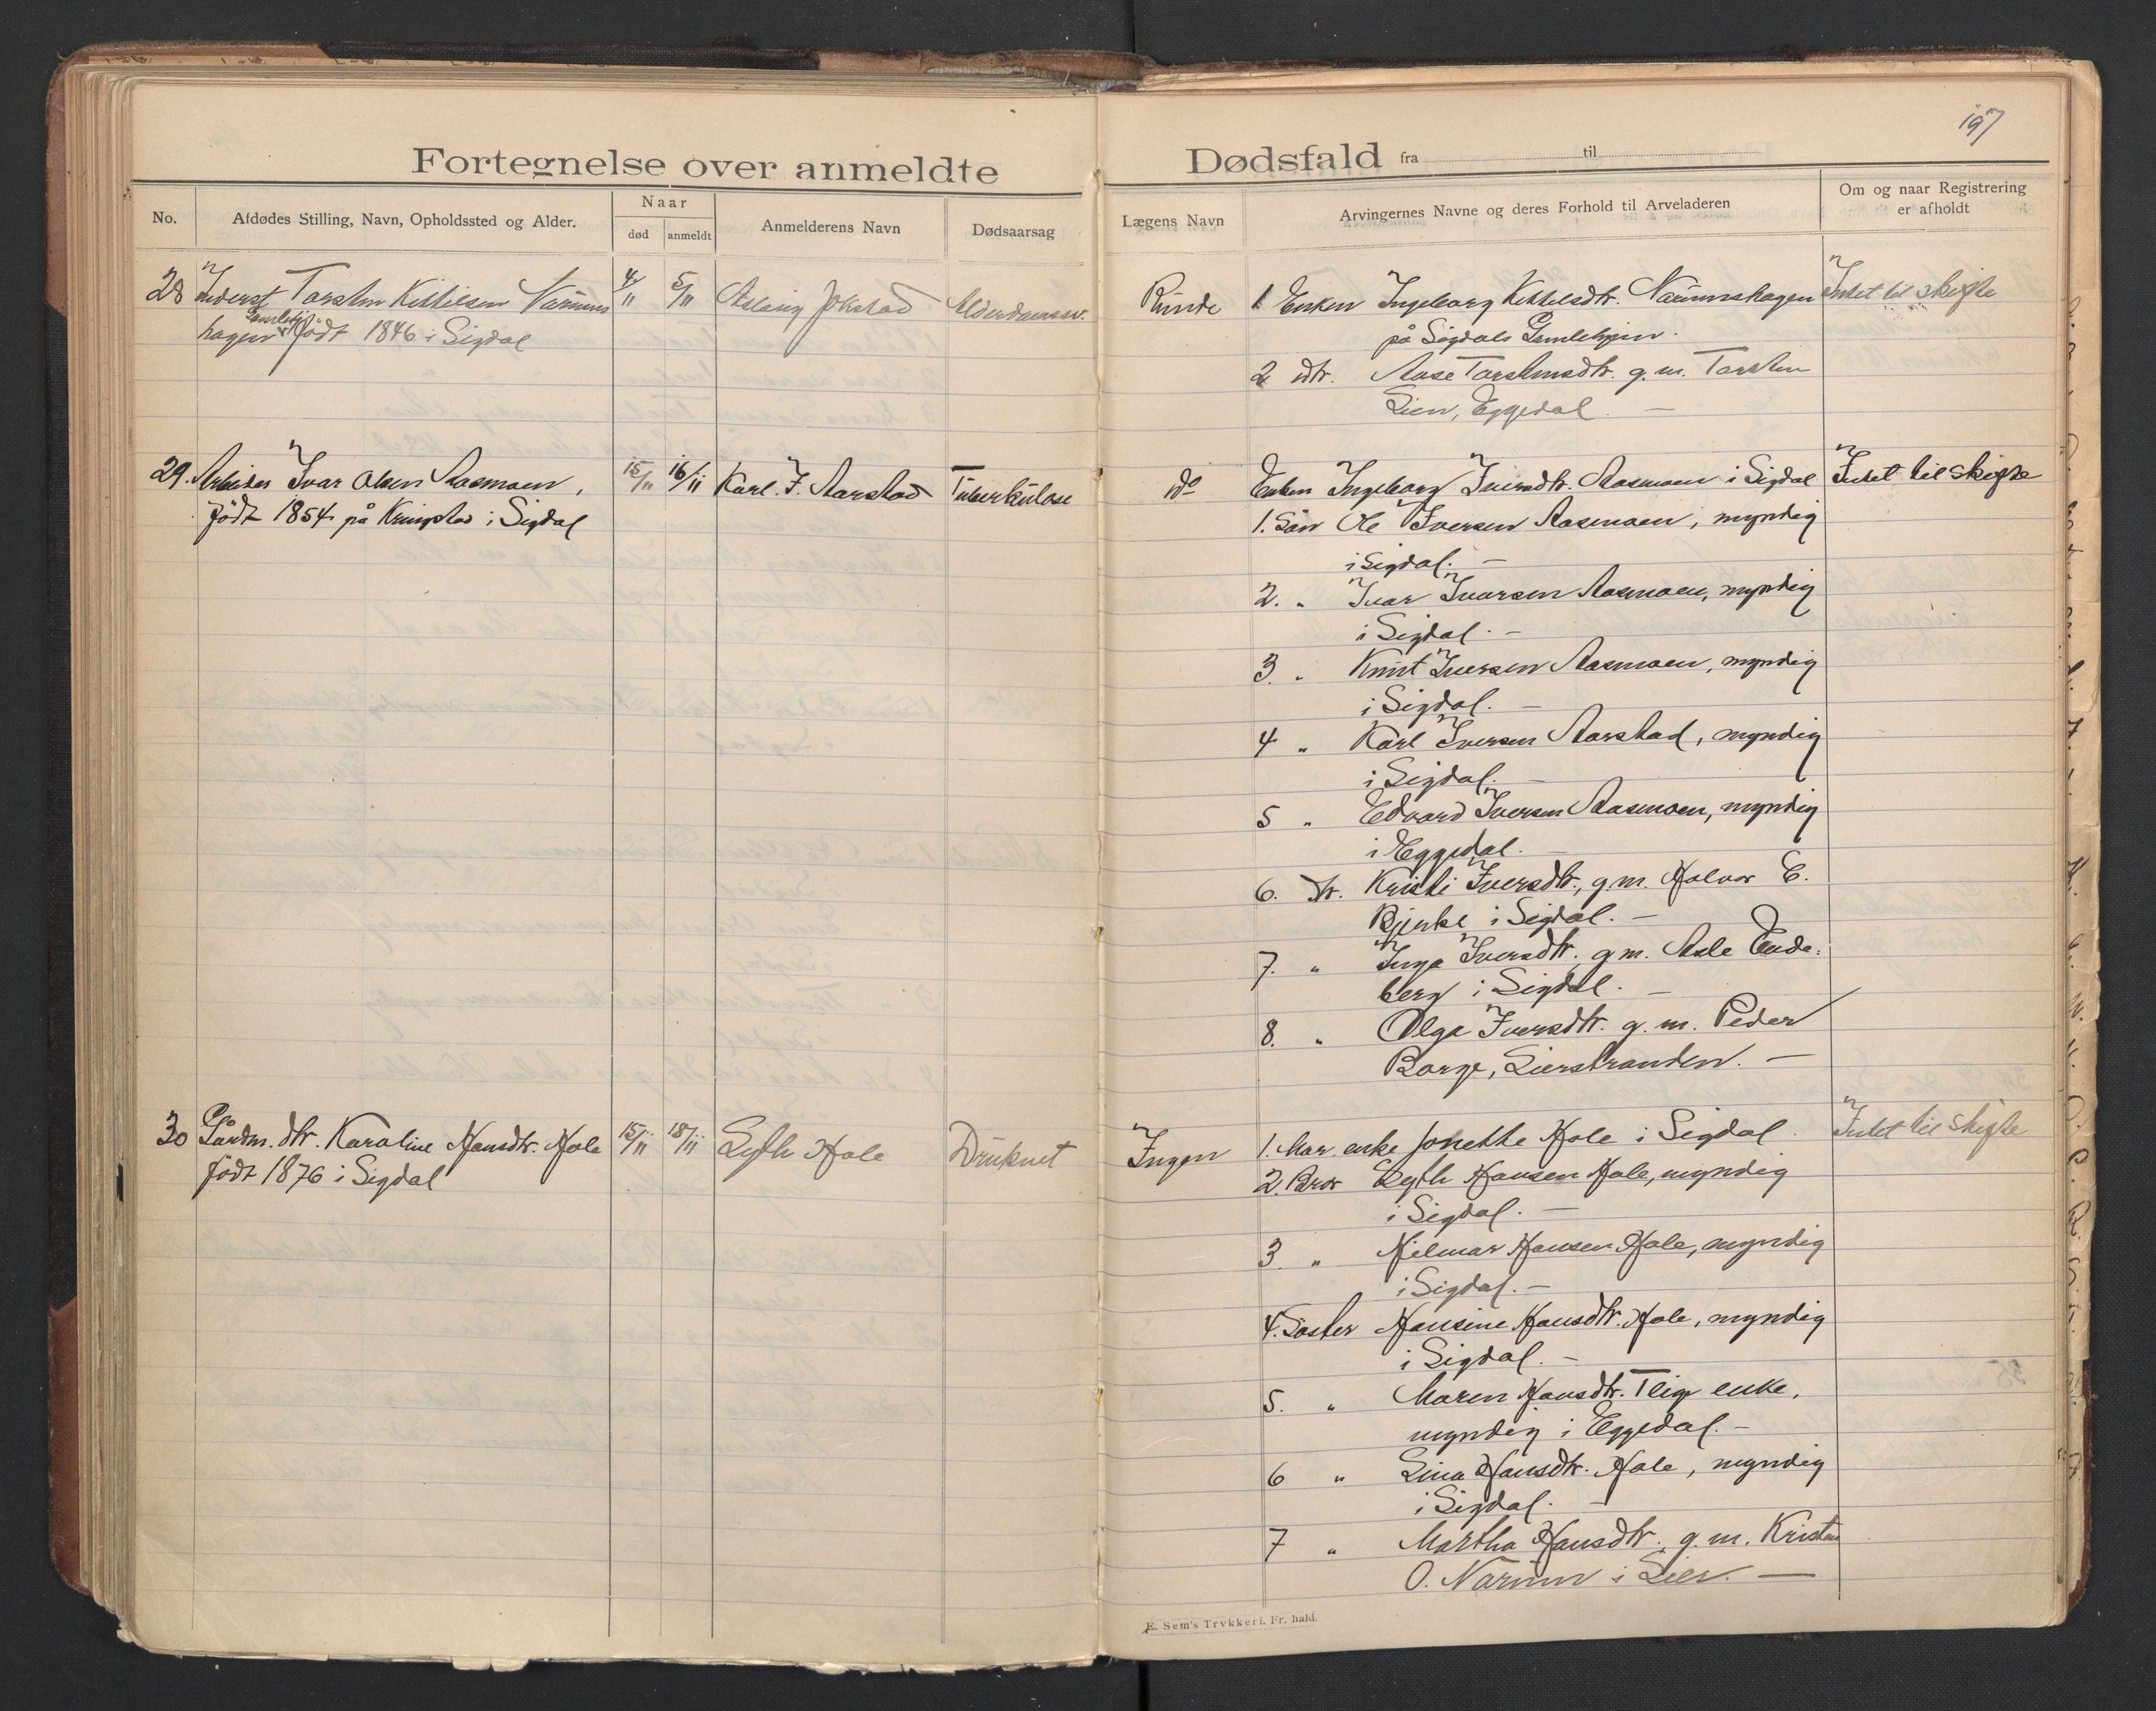 197
Fortegnelse over anmeldte Dødsfald fra til
No.
Afdødes Stilling, Navn, Opholdssted og Alder.
Naar
død
anmeldt
Anmelderens Navn
Dødsaarsag
Lægens Navn
Arvingernes Navne og deres Forhold til Arveladeren
Om og naar Registrering
er afholdt
28 Inderst Torsten Kittilsen Narums 4/11 5/11 Aslaug Jokstad Alderdomssv.
hagen Gamlehj. født 1846 i Sigdal
Runde 1. Enken Ingeborg Kittelsdtr. Narumshagen Intet til skifte
på Sigdals Gamlehjem.
2 dtr. Aase Torstensdtr. g. m. Torsten
Lien, Eggedal. —
29. Arbeider Ivar Olsen Aasmoen, 15/11 16/11 Karl. I. Aarstad Tuberkulose
født 1854 på Kringstad i Sigdal
do Enken Ingeborg Iversdtr. Aasmoen i Sigdal Intet til skifte
1. Søn Ole Iversen Aasmoen, myndig
i Sigdal. —
2. " Ivar Ivarsen Aasmoen, myndig
i Sigdal. —
3. " Knut Iversen Aasmoen, myndig
i Sigdal. —
4 " Karl Iversen Aarstad, myndig
i Sigdal. —
5 " Edvard Iversen Aasmoen, myndig
i Eggedal. —
6. Dtr. Kristi Iversdtr., g. m. Halvor E.
Bjerke i Sigdal. —
7. " Inga Iversdtr., g m. Asle Ende-
berg i Sigdal. —
8. " Olga Iversdtr. g. m. Peder
Borge, Lierstranden. —
30 Gårdm. dtr. Karoline Hansdtr. Hole 15/11 18/11 Lyth Hole Druknet
født 1876 i Sigdal
Ingen 1. Mor enke Jonette Hole i Sigdal. Intet til skifte
2. Bror Lyth Hansen Hole, myndig
i Sigdal. —
3. " Hilmar Hansen Hole, myndig
i Sigdal. —
4. Søster Hansine Hansdtr. Hole, myndig
i Sigdal. —
5. " Maren Hansdtr. enke,
myndig i Eggedal. —
6 " Lina Hansdtr. Hole, myndig
i Sigdal. —
7 " Martha Hansdtr. g. m. Kristen
O. Narum i Lier. —
E. Sem's Trykkeri. Fr. hald.